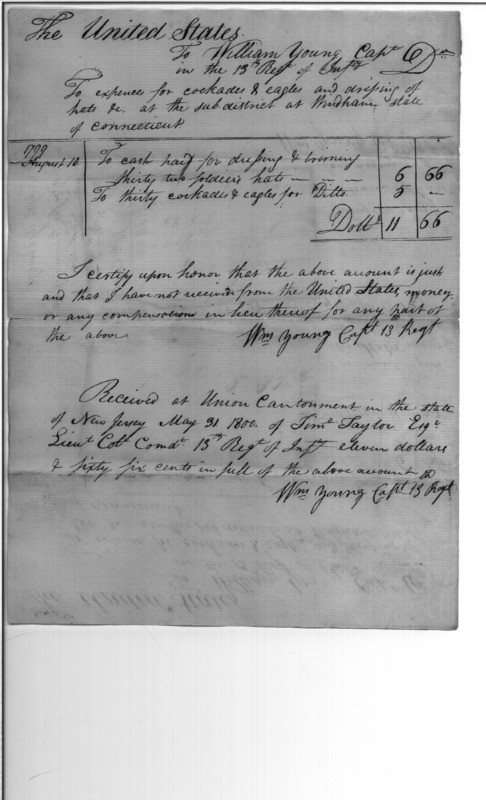 The United States
To William Young Capt Dr
in the 13th Regt of Infty
To expences for cockades & eagles and drissing of
hats &c. at the subdistrict at Windham state
of Connecticut
1799
August 10. To cash paid for dressing & triming
thirty two soldiers hats — — — 6 66
To thirty cockades & eagles for Ditto 5 —
Dolls 11 66
I certify upon honor that the above account is just
and that I have not received from the United States, money
or any compensations in lieu thereof for any part of
the above. Wm Young Capt 13th Regt
Received at Union Cantonment in the state
of New Jersey May 31 1800. of Timo Taylor Esqr
Lieut Coll Comdt 13th Regt of Infty eleven dollars
& sixty six cents in full of the above account
Wm Young Capt 13th Regt